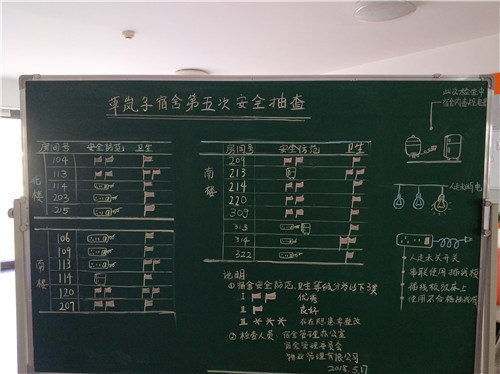 草岚子宿舍第五次安全抽查
房间号 安全防范 卫生
北楼
104
113
114
203
215
南楼
106
109
113
114
120
207
房间号 安全防范 卫生
南楼
209
213
214
220
309
313
314
322
说明:
① 宿舍安全防范、卫生等级分为以下3类
I 优秀
II 良好
III 存在隐患需整改
② 检查人员: 宿舍管理办公室
宿舍管理委员会
物业管理有限公司
2018.5.17
人走未关开关
串联使用排线板
插线板放床上
使用不合格排线板